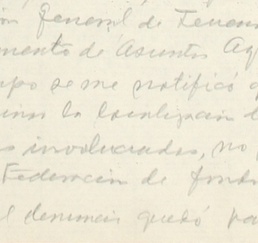 ón General de Tenen
mento de Asuntos Ag
po se me notificó q
la localización d
s involucrados, no p
Federación de fond
el denuncio quedó pa